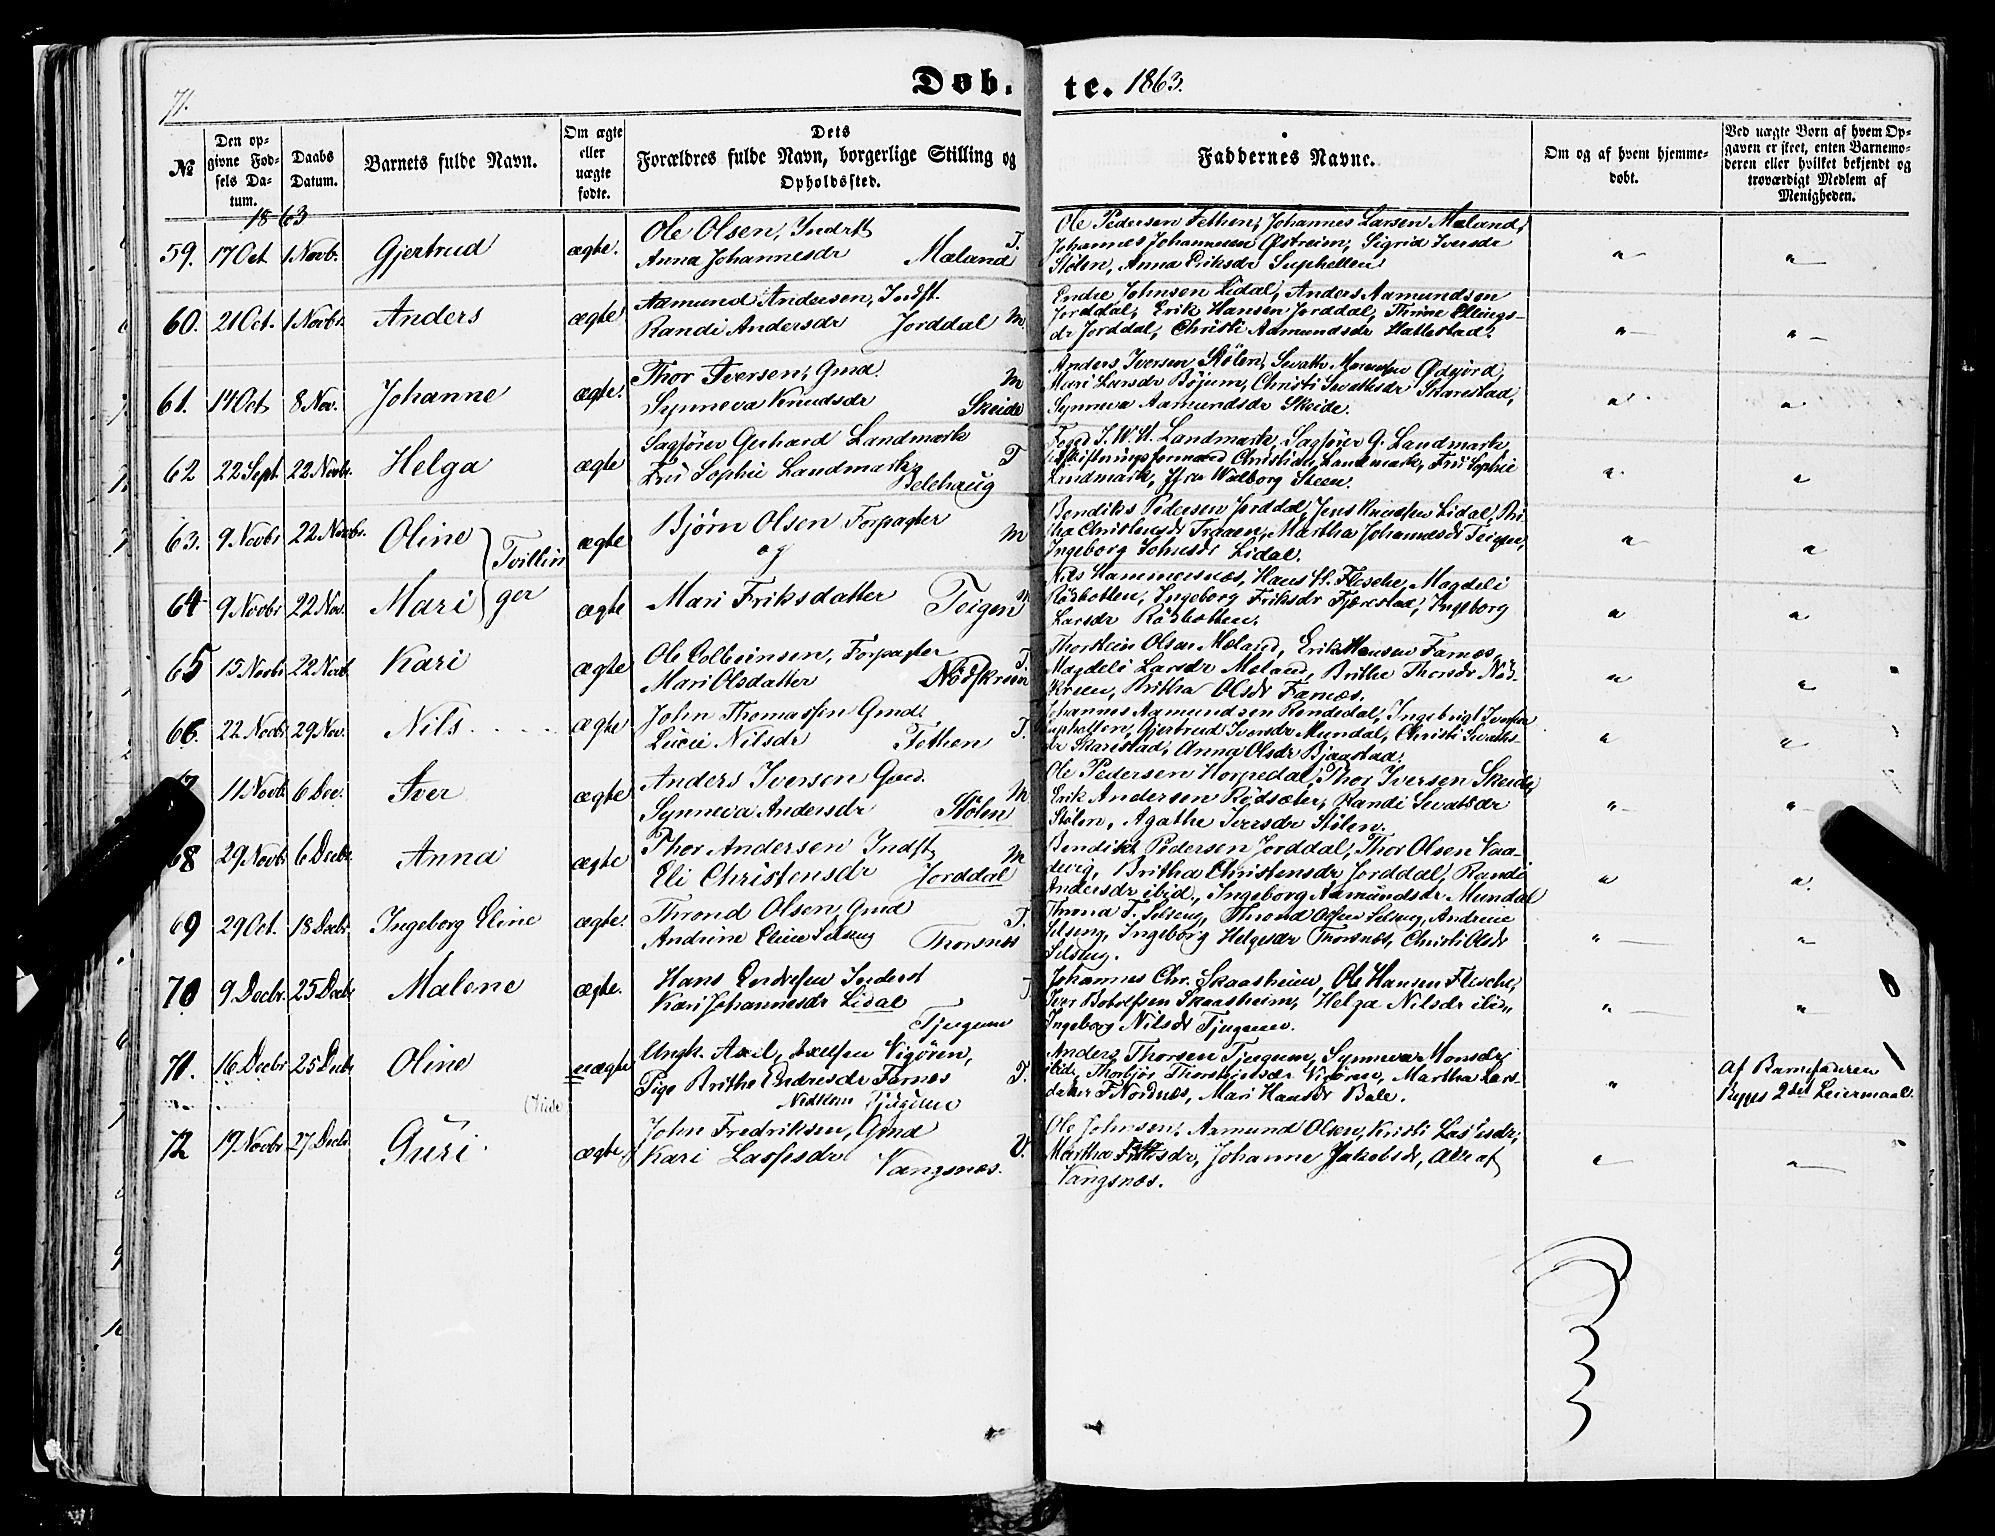 71.
Døb.
te. 1863.
№
Den op-
givne Fød-
sels Da-
tum.
Daabs
Datum.
Barnets fulde Navn.
Om ægte
eller
uægte
fødte.
Dets
Forældres fulde Navn, borgerlige Stilling og
Opholdssted.
Faddernes Navne.
Om og af hvem hjemme-
døbt.
Ved uægte Børn af hvem Op-
gaven er skeet, enten Barnemo-
deren eller hvilket bekjendt og
troværdigt Medlem af
Menigheden.
1863
59. 17 Oct 1 Novb. Gjertrud ægte.
Ole Olsen, Inderst
Anna Johannesdr Mæland T.
Ole Pedersen Fethen, Johannes Larsen Mæland,
Johannes Johannesen Østreim, Sigrid Iversdr
Stølen, Anna Eriksdr Suphellen
" "
60. 21 Oct. 1 Novbr. Anders ægte
Aamund Andersen, Indst.
Randi Andersdr Jorddal M
Endre Johnsen Lidal, Anders Aamundsen
Jorddal, Erik Hansen Jorddal, Thrine Ellings-
dr Jorddal, Christi Aamundsdr Hattestad.
" "
61. 14 Oct 8 Nov. Johanne ægte.
Thor Iversen, Gmd. M
Synneva Knudsdr Skeide
Anders Iversen Stølen, Sevath Ødejord,
Mari Larsdr Bøjum, Christi Sevathsdr Skarestad,
Synneva Aamundsdr Skeide.
" "
62 22 Sept. 22 Novbr. Helga ægte
Sagfører Gerhard Landmark
Fru Sophie Landmark T
Belehaug
Foged J. W. H. Landmark, Sagfører G. Landmark,
Udskiftningsformand Christian Landmark, Fru Sophie
Landmark, Jfru Walborg Steen.
" "
63. 9 Novbr 22 Novbr. Oline Tvillin ægte
Bjørn Olsen Forpagter
og M
Bendiks Pedersen Jorddal, Jens Knudsen Lidal, Bri-
tha Christensdr Fraaen, Martha Johannesdr Teigen,
Ingeborg Johnsdr Lidal.
" "
64 9 Novbr 22 Nov. Mari ger ægte
Mari Friksdatter Teigen
Nils Hammersnæs, Hans H. Flesche, Magdeli
Rødbotten, Ingeborg Friksdr Fjærestad, Ingeborg
Larsdr Rødbotten.
" "
65 15 Novbr 22 Novb. Kari ægte
Ole Colbeinsen, Forpagter T.
Mari Olsdatter Nødskreen
Thorstein Olsen Mæland, Erik Hansen Farnæs,
Magdeli Larsdr Mæland, Brithe Thorsdr Nød-
kreen, Britha Olsdr Farnæs.
" "
66. 22 Novbr 29 Nov. Nils . . . . ægte
John Thomassen Gmd.
Lucie Nilsdr Fethen T.
Johannes Aamundsen Rendedal, Ingebrigt Iversen
Suphellen, Gjertrud Iversdr Mundal, Christi Sevaths-
dr Skarestad, Anna Olsdr Bjaastad.
" "
11 Novb. 6 Dec. Iver ægte
Anders Iversen Gmd.
Synneva Andersdr Stølen M
Ole Pedersen Horpedal, Thor Iversen Skeide,
Erik Andersen Rødsæter, Randi Sevatsdr
Stølen, Agathe Iversdr Stølen.
" "
68 29 Novbr 6 Decbr Anna ægte
Thor Andersen Indst M
Eli Christensdr Jorddal
Bendikt Pedersen Jorddal, Thor Olsen Vaa-
devig, Britha Christensdr Jorddal, Randi
Andersdr ibid, Ingeborg Aamundsdr Mundal
" "
69 29 Oct. 18 Decbr Ingeborg Eline ægte.
Thrond Olsen, Gmd T.
Andrine Eline Selseng Thorsnæs
Thrond T. Selseng, Thrond Olsen Selseng, Andrine
Selseng, Ingeborg Helgesdr Thorsnæs, Christi Olsdr
Selseng.
" "
70 9 Decbr. 25 Decbr Malene ægte.
Hans Endresen Inderst
Kari Johannesdr Lidal
Tjugum T
Johannes Chr. Skaasheim, Ole Hansen Flesche,
Iver Botolfsen Skaasheim, Helga Nilsdr ibid.,
Ingeborg Nilsdr Tjugum.
" "
71. 16 Decbr 25 Decbr Oline uægte
Ungk. Axel Axelsen Vigøren,
Pige Brithe Endresdr Farnæs T.
Nedstem Tjugum
Anders Thorsen Tjugum, Synneva Monsdr
ibid, Thorbjør Thorsteinsdr Vigøren, Martha Lars-
datter Nordnæs, Mari Hansdr Bale.
"
Af Barnefaderen
Begges 2det Leiermaal.
72 19 Novbr 27 Decbr Guri ægte,
John Fredriksen, Gmd
Kari Lassesdr Vangsnæs. V.
Ole Johnsen, Aamund Olsen, Kristi Lassesdr,
Martha , Johanne Jakobsdr, Alle af
Vangsnæs.
" "